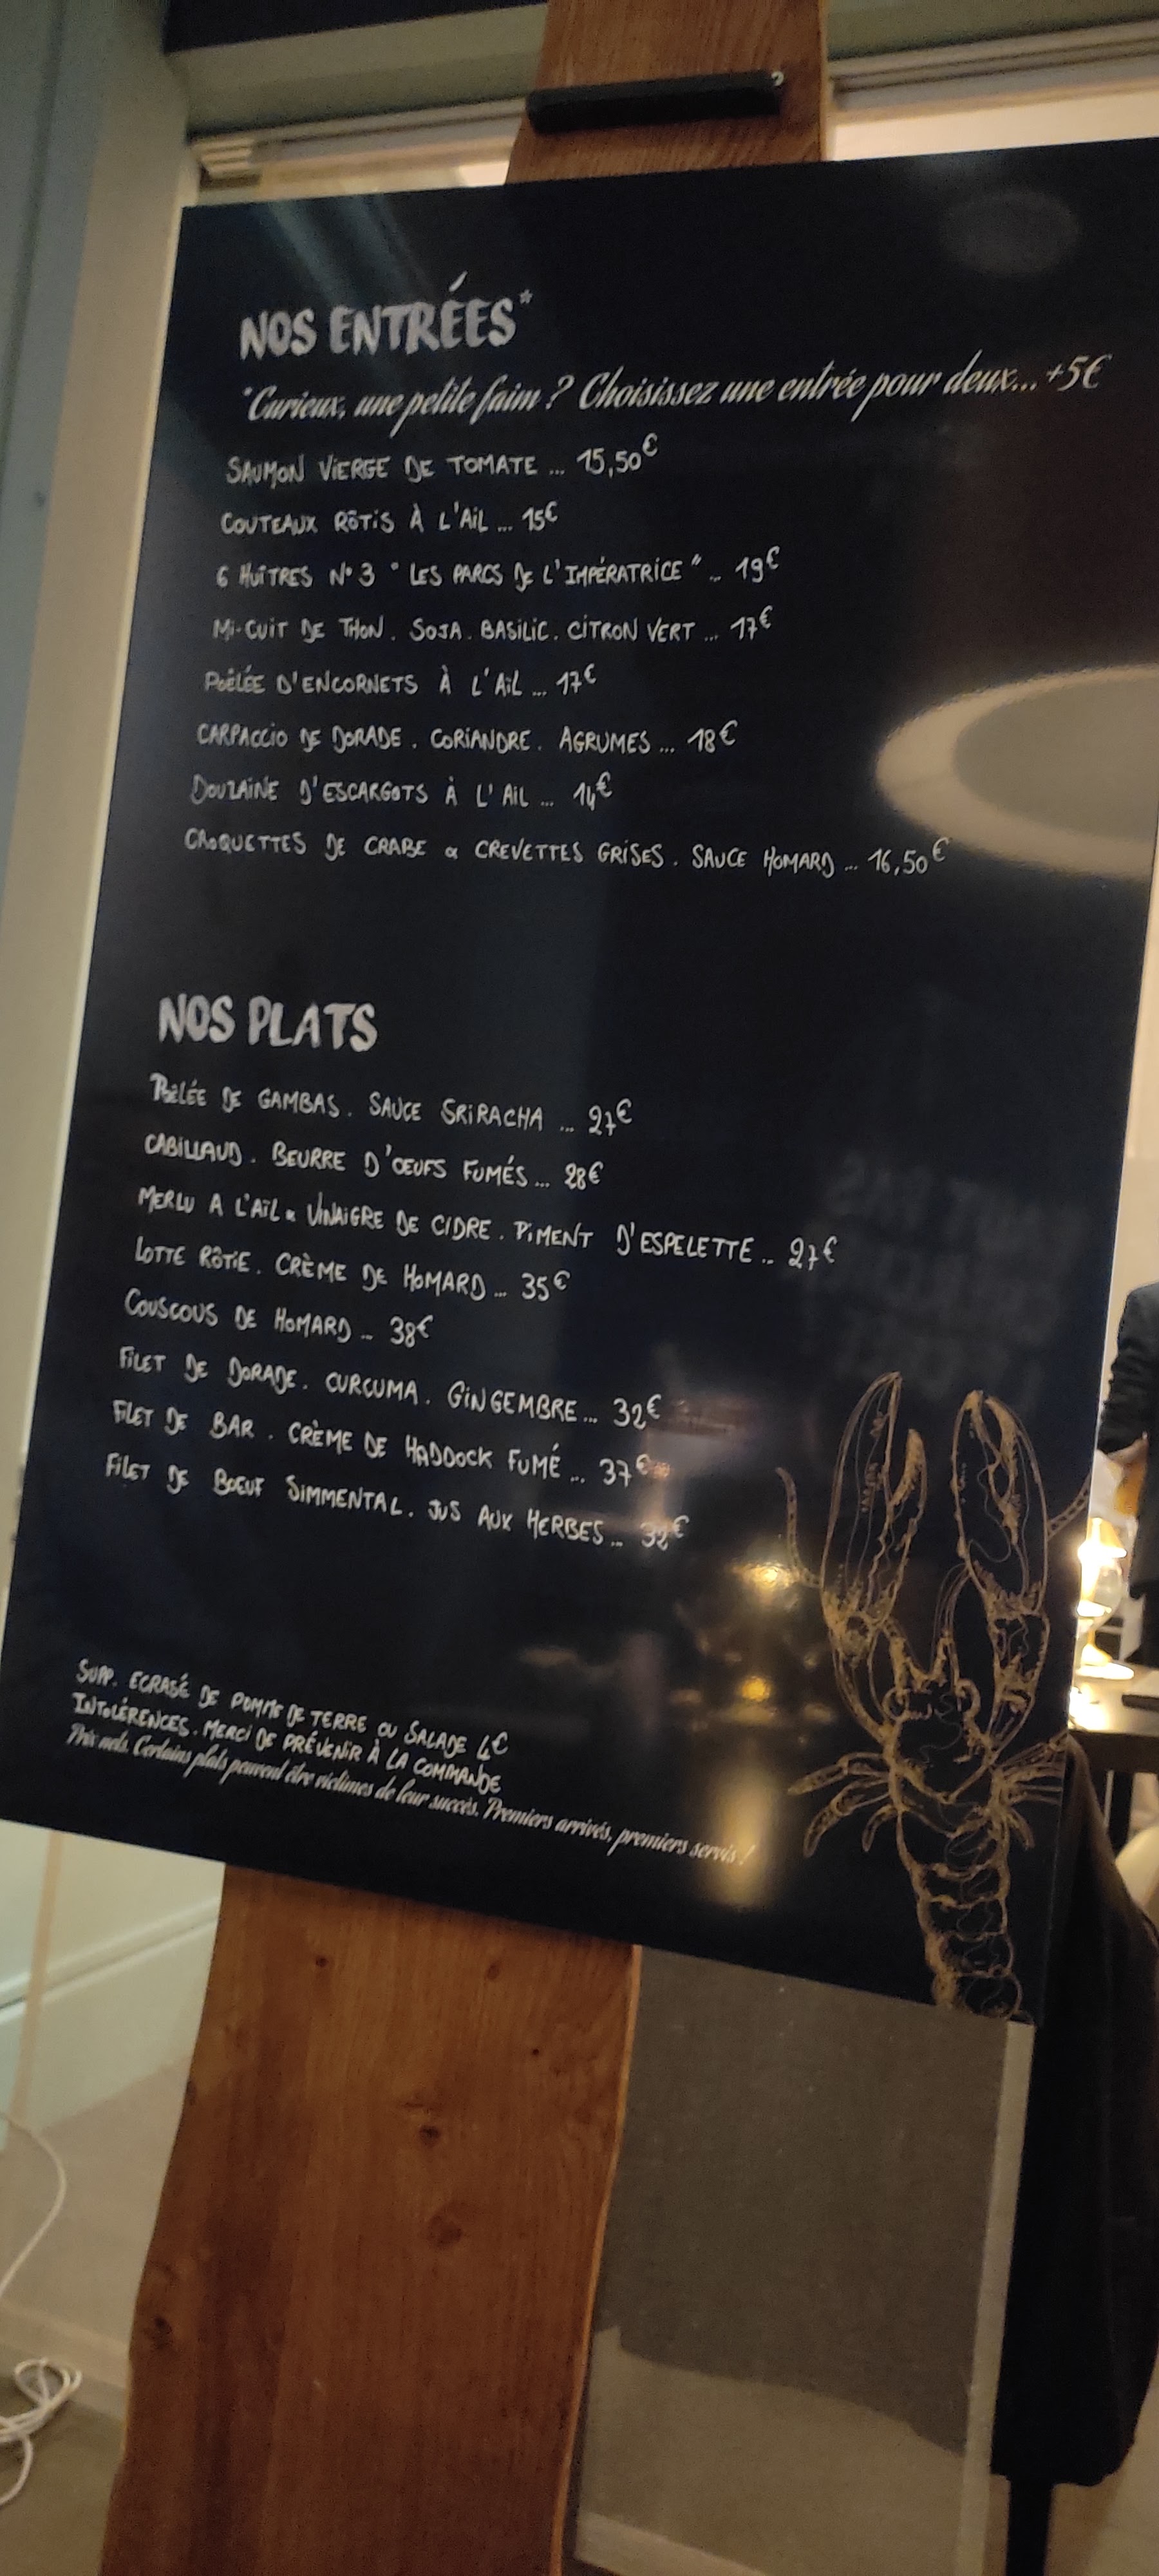 NOS ENTRÉES*
*Curieux, une petite faim ? Choisissez une entrée pour deux... +5€
SAUMON VIERGE DE TOMATE ... 15,50€
COUTEAUX RÔTIS À L'AIL ... 15€
6 HUÎTRES N°3 "LES PARCS DE L'IMPÉRATRICE" ... 19€
MI-CUIT DE THON . SOJA . BASILIC . CITRON VERT ... 17€
POÊLÉE D'ENCORNETS À L'AIL ... 17€
CARPACCIO DE DORADE . CORIANDRE . AGRUMES ... 18€
DOUZAINE D'ESCARGOTS À L'AIL ... 14€
CROQUETTES DE CRABE & CREVETTES GRISES . SAUCE HOMARD ... 16,50€
NOS PLATS
POÊLÉE DE GAMBAS . SAUCE SRIRACHA ... 27€
CABILLAUD . BEURRE D'ŒUFS FUMÉS ... 28€
MERLU A L'AIL & VINAIGRE DE CIDRE . PIMENT D'ESPELETTE ... 27€
LOTTE RÔTIE . CRÈME DE HOMARD ... 35€
COUSCOUS DE HOMARD ... 38€
FILET DE DORADE . CURCUMA . GINGEMBRE ... 32€
FILET DE BAR . CRÈME DE HADDOCK FUMÉ ... 37€
FILET DE BOEUF SIMMENTAL . JUS AUX HERBES ... 32€
SUPP. ECRASÉ DE POMME DE TERRE OU SALADE 4€
INTOLÉRENCES . MERCI DE PRÉVENIR À LA COMMANDE
Prix nets. Certains plats peuvent être victimes de leur succès. Premiers arrivés, premiers servis !